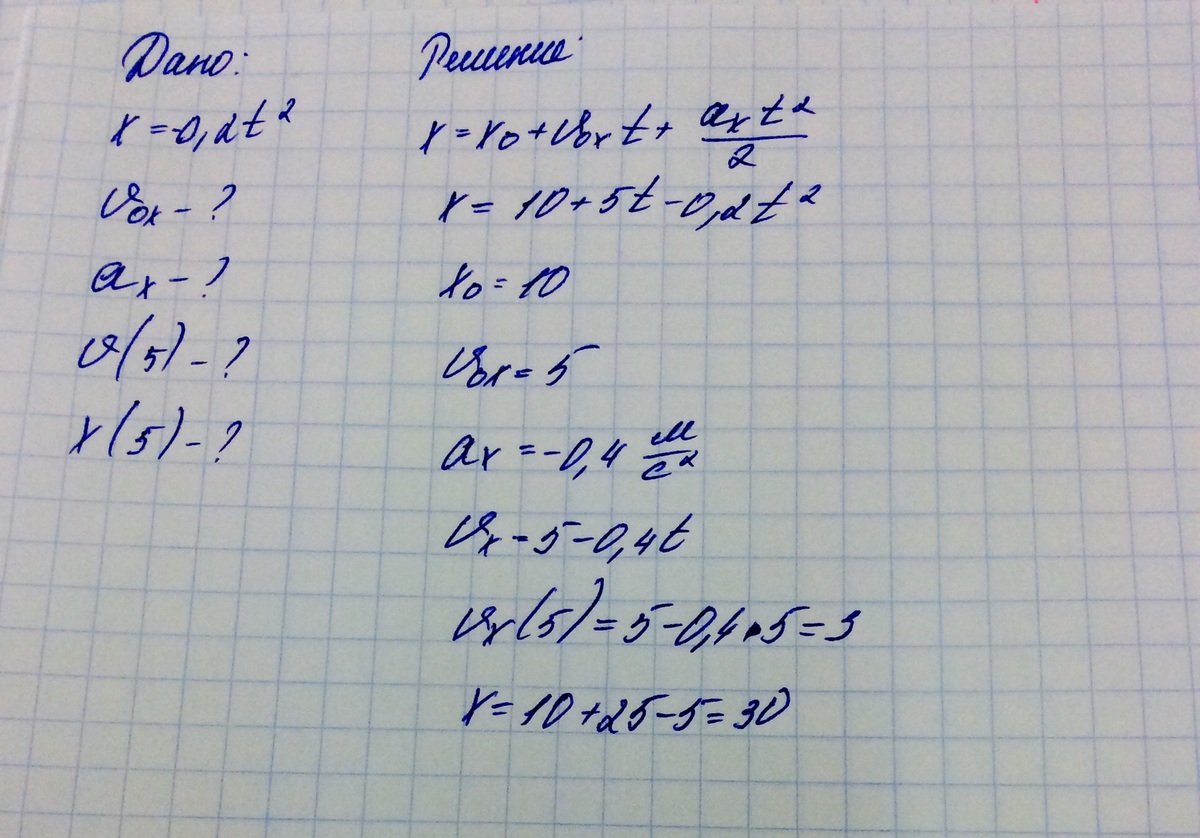 Дано:
x = -0,2t²
v₀ₓ - ?
aₓ - ?
v(5) - ?
x(5) - ?
Решение:
x = x₀ + v₀ₓt + aₓt²/2
x = 10 + 5t - 0,2t²
x₀ = 10
v₀ₓ = 5
aₓ = -0,4 м/с²
vₓ - 5 - 0,4t
vₓ(5) = 5 - 0,4 • 5 = 3
x = 10 + 25 - 5 = 30